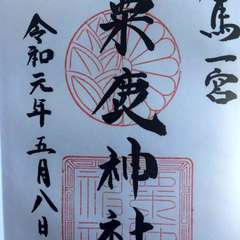 馬一宮
粟鹿神社
令和元年五月八日